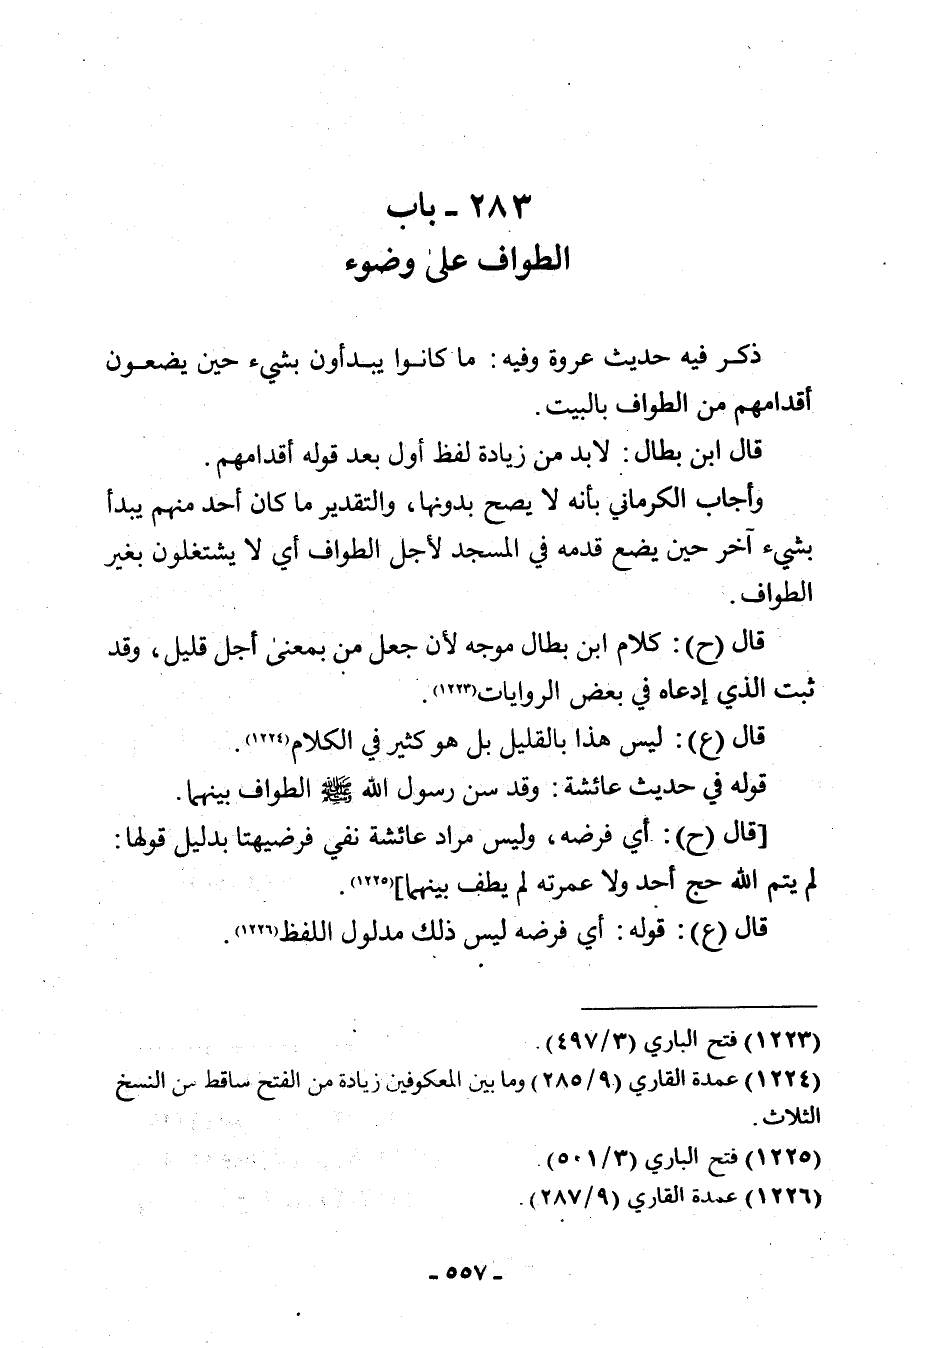 ٢٨٣ ـ باب
الطواف علىٰ وضوء
ذكر فيه حديث عروة وفيه: ما كانوا يبدأون بشيء حين يضعون
أقدامهم من الطواف بالبيت.
قال ابن بطال: لابد من زيادة لفظ أول بعد قوله أقدامهم.
وأجاب الكرماني بأنه لا يصح بدونها، والتقدير ما كان أحد منهم يبدأ
بشيء آخر حين يضع قدمه في المسجد لأجل الطواف أي لا يشتغلون بغير
الطواف.
قال (ح): كلام ابن بطال موجه لأن جعل من بمعنىٰ أجل قليل، وقد
ثبت الذي إدعاه في بعض الروايات(١٢٢٣).
قال (ع): ليس هذا بالقليل بل هو كثير في الكلام(١٢٢٤).
قوله في حديث عائشة: وقد سن رسول الله ﷺ الطواف بينهما.
[قال (ح): أي فرضه، وليس مراد عائشة نفي فرضيهتا بدليل قولها:
لم يتم الله حج أحد ولا عمرته لم يطف بينهما](١٢٢٥).
قال (ع): قوله: أي فرضه ليس ذلك مدلول اللفظ(١٢٢٦).
(١٢٢٣) فتح الباري (٤٩٧/٣).
(١٢٢٤) عمدة القاري (٢٨٥/٩) وما بين المعكوفين زيادة من الفتح ساقط من النسخ
الثلاث.
(١٢٢٥) فتح الباري (٥٠١/٣).
(١٢٢٦) عمدة القاري (٢٨٧/٩).
ـ ٥٥٧ ـ